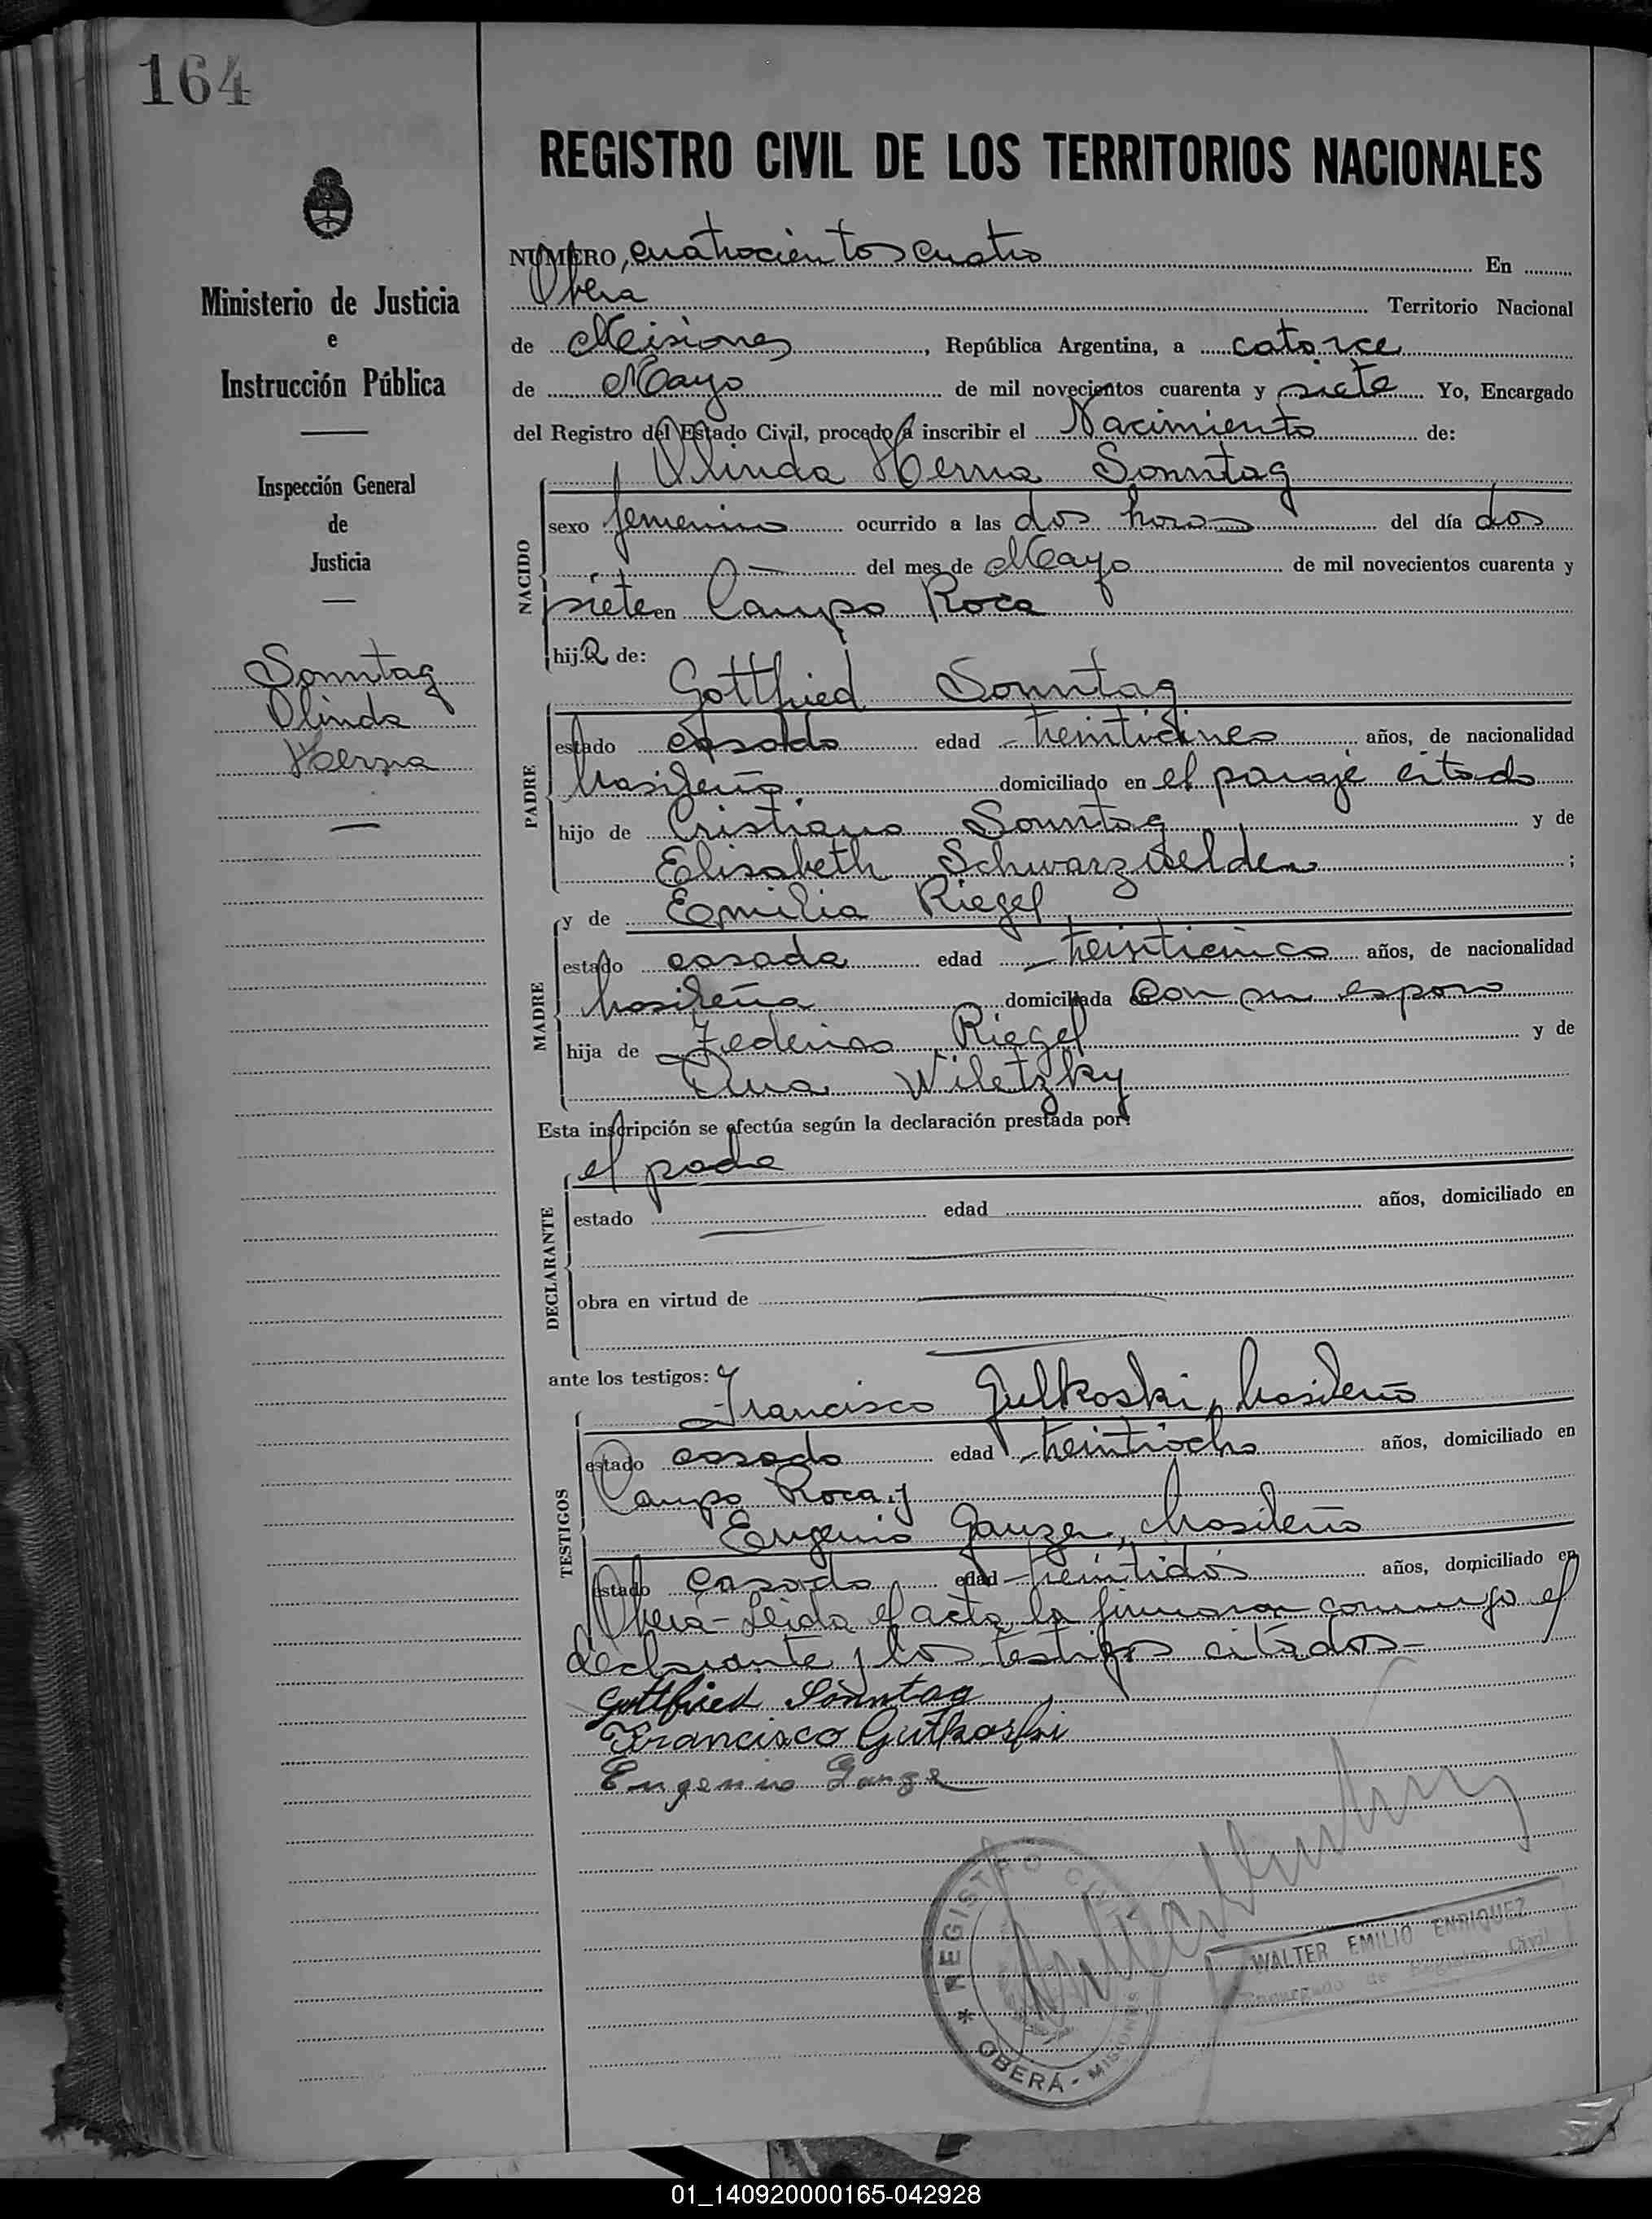 164
REGISTRO CIVIL DE LOS TERRITORIOS NACIONALES
Ministerio de Justicia
e
Instrucción Pública
Inspección General
de
Justicia
Sonntag
Olinda
Herna
NUMERO, cuatrocientos cuatro En
Obera Territorio Nacional
de Misiones, República Argentina, a catorce
de Mayo de mil novecientos cuarenta y siete Yo, Encargado
del Registro del Estado Civil, procedo a inscribir el Nacimiento de:
Olinda Herna Sonntag
NACIDO
sexo femenino ocurrido a las dos horas del día dos
del mes de Mayo de mil novecientos cuarenta y
siete en Campo Roca
hija de:
Gottfried Sonntag
PADRE
estado casado edad treinticinco años, de nacionalidad
brasileño domiciliado en el paraje citado
hijo de Cristiano Sonntag y de
Elisabeth Schwarzwelder;
MADRE
y de Emilia Riegel
estado casada edad treinticinco años, de nacionalidad
brasileña domiciliada con su esposo
hija de Federico Riegel y de
Ana Wiletzky
Esta inscripción se efectúa según la declaración prestada por:
el padre
DECLARANTE
estado edad años, domiciliado en
obra en virtud de
ante los testigos:
Francisco Gutkoski, brasileño
TESTIGOS
estado casado edad treintiocho años, domiciliado en
Campo Roca y
Eugenio Ganzer, brasileño
estado casado edad treintidós años, domiciliado en
Oberá- Leida el acta la firmaron conmigo el
declarante y los testigos citados-
Gottfried Sonntag
Francisco Gutkoski
Eugenio Ganze
* REGISTRO CIVIL * OBERÁ - MISIONES
WALTER EMILIO ENRIQUEZ
Encargado de Registro Civil
01_140920000165-042928